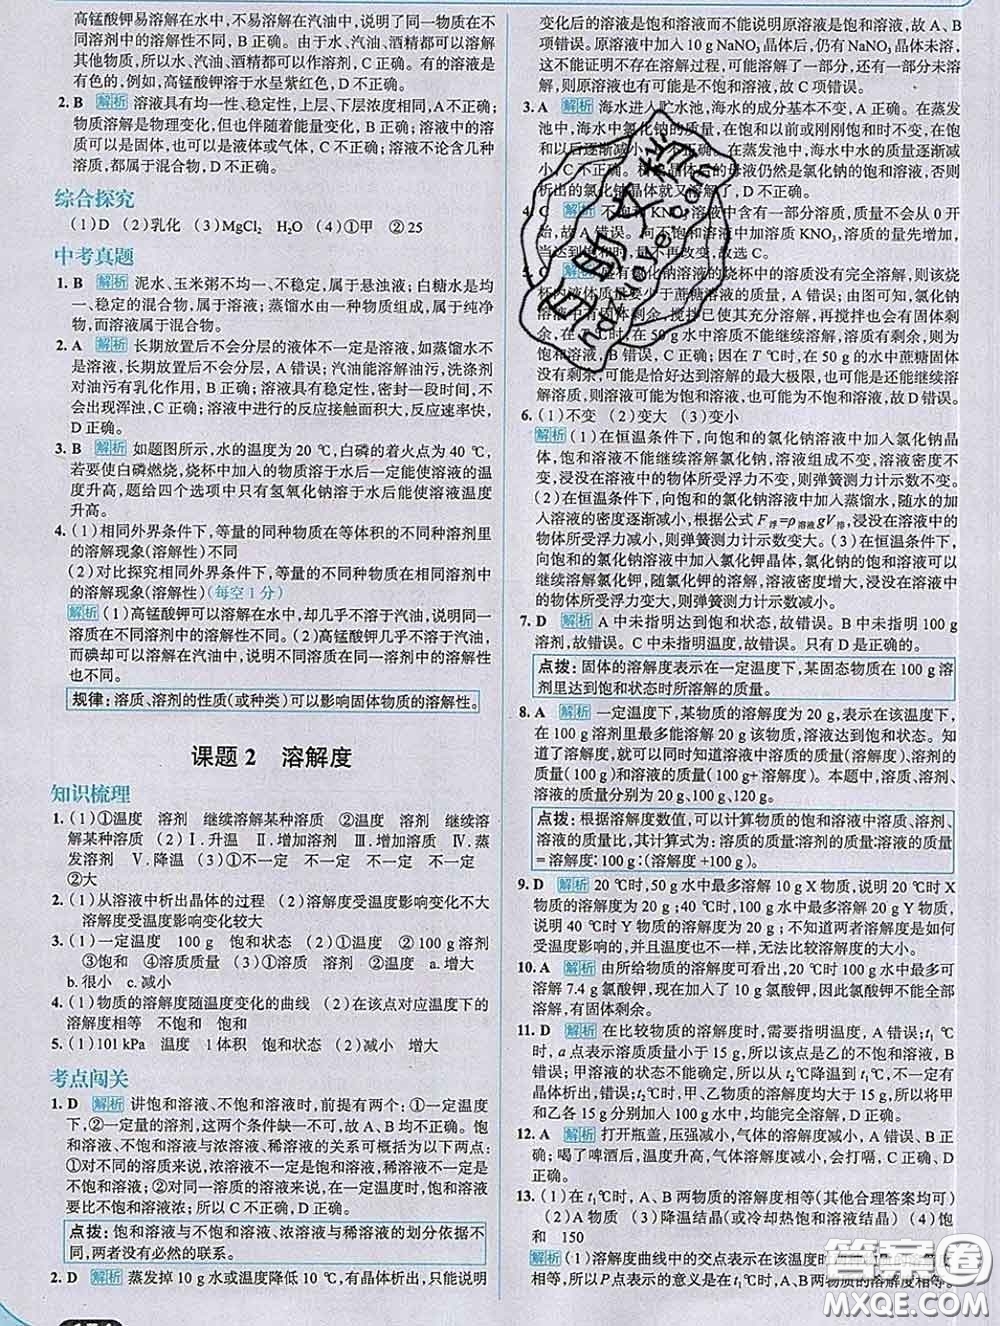 高锰酸钾易溶解在水中,不易溶解在汽油中,说明了同一物质在
不同溶剂中的溶解性不同,B正确。由于水、汽油、酒精都可以溶解
其他物质,所以水、汽油、酒精都可以作溶剂,C正确。有的溶液是
有色的,例如,高锰酸钾溶于水呈紫红色,D不正确。
2. B 解析 溶液具有均一性、稳定性,上层、下层浓度相同,A不正确;
物质溶解是物理变化,但也伴随着能量变化,B正确;溶液中的溶
质可以是固体,也可以是液体或气体,C不正确。溶液不论含几种
溶质,都属于混合物,D不正确。
综合探究
(1)D (2)乳化 (3)MgCl₂ H₂O (4)①甲 ②25
中考真题
1. B 解析 泥水、玉米粥不均一、不稳定,属于悬浊液;白糖水是均
一、稳定的混合物,属于溶液;蒸馏水由一种物质组成,属于纯净
物,而溶液属于混合物。
2. A 解析 长期放置后不会分层的液体不一定是溶液,如蒸馏水不
是溶液,长期放置后不会分层,A错误;汽油能溶解油污,洗涤剂
对油污有乳化作用,B正确;溶液具有稳定性,密封一段时间,不
会出现浑浊,C正确;溶液中进行的反应接触面积大,反应速率快,
D正确。
3. B 解析 如题图所示,水的温度为20 ℃,白磷的着火点为40 ℃,
若要使白磷燃烧,烧杯中加入的物质溶于水后一定能使溶液的温
度升高,题给四个选项中只有氢氧化钠溶于水后能使溶液温度
升高。
4. (1)相同外界条件下,等量的同种物质在等体积的不同种溶剂里
的溶解现象(溶解性)不同
(2)对比探究相同外界条件下,等量的不同种物质在相同溶剂中
的溶解现象(溶解性)(每空1分)
解析 (1)高锰酸钾可以溶解在水中,却几乎不溶于汽油,说明同一
溶质在不同溶剂中的溶解性不同。(2)高锰酸钾几乎不溶于汽油,
而碘却可以溶解在汽油中,说明不同溶质在同一溶剂中的溶解性
也不同。
规律:溶质、溶剂的性质(或种类)可以影响固体物质的溶解性。
课题2 溶解度
知识梳理
1. (1)①温度 溶剂 继续溶解某种溶质 ②温度 溶剂 继续溶
解某种溶质 (2)Ⅰ.升温 Ⅱ.增加溶剂 Ⅲ.增加溶质 Ⅳ.蒸
发溶剂 Ⅴ.降温 (3)①不一定 不一定 不一定 不一定
②大
2. (1)从溶液中析出晶体的过程 (2)溶解度受温度影响变化不大
溶解度受温度影响变化较大
3. (1)一定温度 100 g 饱和状态 (2)①温度 ②100 g溶剂
③饱和 ④溶质质量 (3)①溶质 溶剂 ②温度 a.增大
b.很小 c.减小
4. (1)物质的溶解度随温度变化的曲线 (2)在该点对应温度下的
溶解度相等 不饱和 饱和
5. (1)101 kPa 温度 1体积 饱和状态 (2)减小 增大
考点闯关
1. D 解析 讲饱和溶液、不饱和溶液时,前提有两个:①一定温度
下,②一定量的溶剂,这两个条件缺一不可,故A、B均不正确。饱
和溶液、不饱和溶液与浓溶液、稀溶液的关系可概括为以下两点:
①对不同的溶质来说,浓溶液不一定是饱和溶液,稀溶液不一定是
不饱和溶液;②对同一溶质的溶液来说,在一定温度时,饱和溶液
比不饱和溶液浓;所以C不正确,D正确。
点拨:饱和溶液与不饱和溶液、浓溶液与稀溶液的划分依据不
同,两者没有必然的联系。
2. D 解析 蒸发掉10 g水或温度降低10 ℃,有晶体析出,只能说明
变化后的溶液是饱和溶液而不能说明原溶液是饱和溶液,故A、B
项错误。原溶液中加入10 g NaNO₃晶体后,仍有NaNO₃晶体未溶,
这不能证明不存在溶解过程,可能溶解了一部分,还有一部分未溶
解,则原溶液也有可能是不饱和溶液,故C项错误。
3. A 解析 海水进入贮水池,海水的成分基本不变,A正确。在蒸发
池中,海水中氯化钠的质量,在饱和以前或刚刚饱和时不变,在饱
和以后逐渐减小,B不正确。在蒸发池中,海水中水的质量逐渐减
小,C不正确。析出晶体后的母液仍然是氯化钠的饱和溶液,否则
析出的氯化钠晶体就又溶解了,D不正确。
4. C 解析 不饱和KNO₃溶液中含有一部分溶质,质量不会从0开
始,故A错误。向其中不断加溶质KNO₃,溶质的量先增加,
当达到饱和时,质量不再改变,故选C。
5. C 解析 盛有氯化钠溶液的烧杯中的溶质没有完全溶解,则该烧
杯内液体质量要小于蔗糖溶液的质量,A错误;由图可知,氯化钠
溶液中有固体剩余,搅拌已使其充分溶解,再搅拌也会有固体剩
余,则在T ℃时,在50 g水中溶质不能继续溶解,溶液有剩余,则为
饱和溶液,B错误,C正确;因在T ℃时,在50 g的水中蔗糖固体
没有剩余,可能是恰好达到溶解的最大极限,也可能是还能继续溶
解溶质,则溶液可能为饱和溶液,也可能为不饱和溶液,故D错误。
6. (1)不变 (2)变大 (3)变小
解析 (1)在恒温条件下,向饱和的氯化钠溶液中加入氯化钠晶
体,饱和溶液不能继续溶解氯化钠,溶液组成不变,溶液密度不
变,浸没在溶液中的物体所受浮力不变,则弹簧测力计示数不变。
(2)在恒温条件下,向饱和的氯化钠溶液中加入蒸馏水,随水的加
入溶液的密度逐渐减小,根据公式F浮=ρ溶液gV排,浸没在溶液中的
物体所受浮力减小,则弹簧测力计示数变大。(3)在恒温条件下,
向饱和的氯化钠溶液中加入氯化钾晶体,氯化钠的饱和溶液可以
继续溶解氯化钾,随氯化钾的溶解,溶液密度增大,浸没在溶液中
的物体所受浮力增大,则弹簧测力计示数减小。
7. D 解析 A中未指明达到饱和状态,故错误。B中未指明100 g
溶剂,故错误。C中未指明温度,故错误。只有D是正确的。
点拨:固体的溶解度表示在一定温度下,某固态物质在100 g溶
剂里达到饱和状态时所溶解的质量。
8. A 解析 一定温度下,某物质的溶解度为20 g,表示在该温度下,
100 g溶剂里最多能溶解20 g该物质,溶液达到饱和状态。知
道了溶解度,可以同时知道溶液中溶质的质量(溶解度)、溶剂的
质量(100 g)和溶液的质量(100 g+溶解度)。本题中,溶质、溶剂、
溶液的质量分别为20 g、100 g、120 g。
点拨:根据溶解度数值,可以计算物质的饱和溶液中溶质、溶剂、
溶液的质量比,其计算式为:溶质的质量∶溶剂的质量∶溶液的质量
=溶解度∶100 g∶(溶解度+100 g)。
9. D 解析 20 ℃时,50 g水中最多溶解10 g X物质,说明20 ℃时X
物质的溶解度为20 g;40 ℃时,100 g水中最多溶解20 g Y物质,
说明40 ℃时Y物质的溶解度为20 g;不知道两者溶解度是如何
受温度影响的,并且温度也不一样,无法比较溶解度的大小。
10. A 解析 由所给物质的溶解度可看出,20 ℃时100 g水中最多可
溶解7.4 g氯酸钾,现在加入了10 g氯酸钾,因此氯酸钾不能全部
溶解,有固体剩余。
11. D 解析 在比较物质的溶解度时,需要指明温度,A错误;t₁ ℃
时,a点表示溶质质量小于15 g,所以该点是乙的不饱和溶液,B错
误;甲溶液的状态不能确定,所以从t₂℃降温到t₁℃,不一定有晶
体析出,错误;t₂℃时,甲、乙物质的溶解度均大于15 g,所以将甲
和乙各15 g分别加入100 g水中,均能完全溶解,D正确。
12. A 解析 打开瓶盖,压强减小,气体的溶解度减小,A错误、B正
确;喝了啤酒后,温度升高,气体溶解度减小,会打嗝,C、D
正确。
13. (1)在t₁℃时,A、B两物质的溶解度相等(其他合理答案均可)
(2)A物质 (3)降温结晶(或冷却热饱和溶液结晶) (4)饱
和 150
解析 (1)溶解度曲线中的交点表示在该温度时
相等,所以P点表示的意义是在t₁℃时,A、B两物质的溶解度相等。
自助文档
答案圈
MXQE.COM